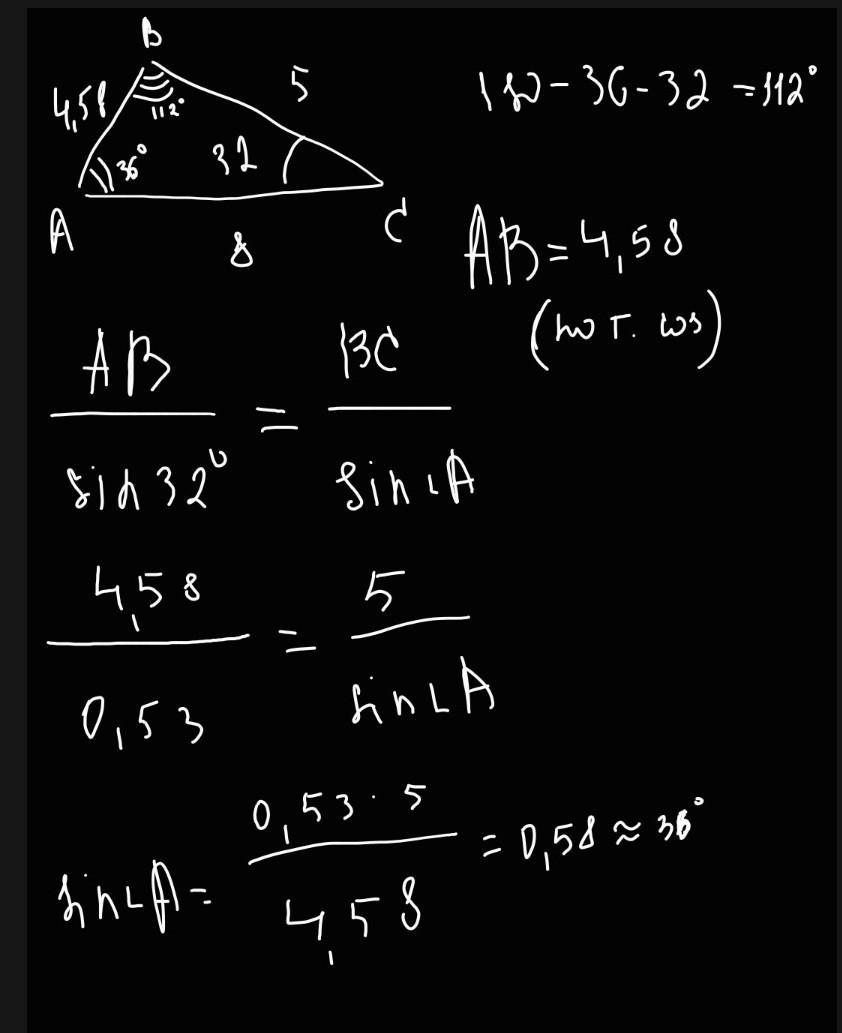 B
4,58
5
112°
36°
32
A
8
C
180-36-32 = 112°
AB = 4,58
(по т. cos)
AB / sin 32° = BC / sin∠A
4,58 / 0,53 = 5 / sin∠A
sin∠A = 0,53 · 5 / 4,58 = 0,58 ≈ 36°